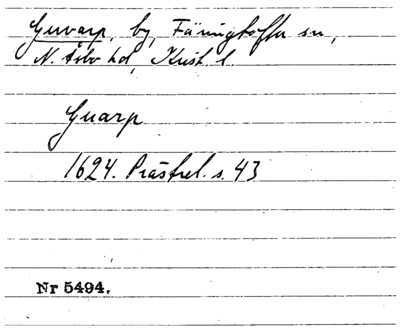 Guvarp, by, Färingtofta sn,
N. Åsbo hd, Krist. l.
Guarp
1624. Prästrel. s. 43
Nr 5494.